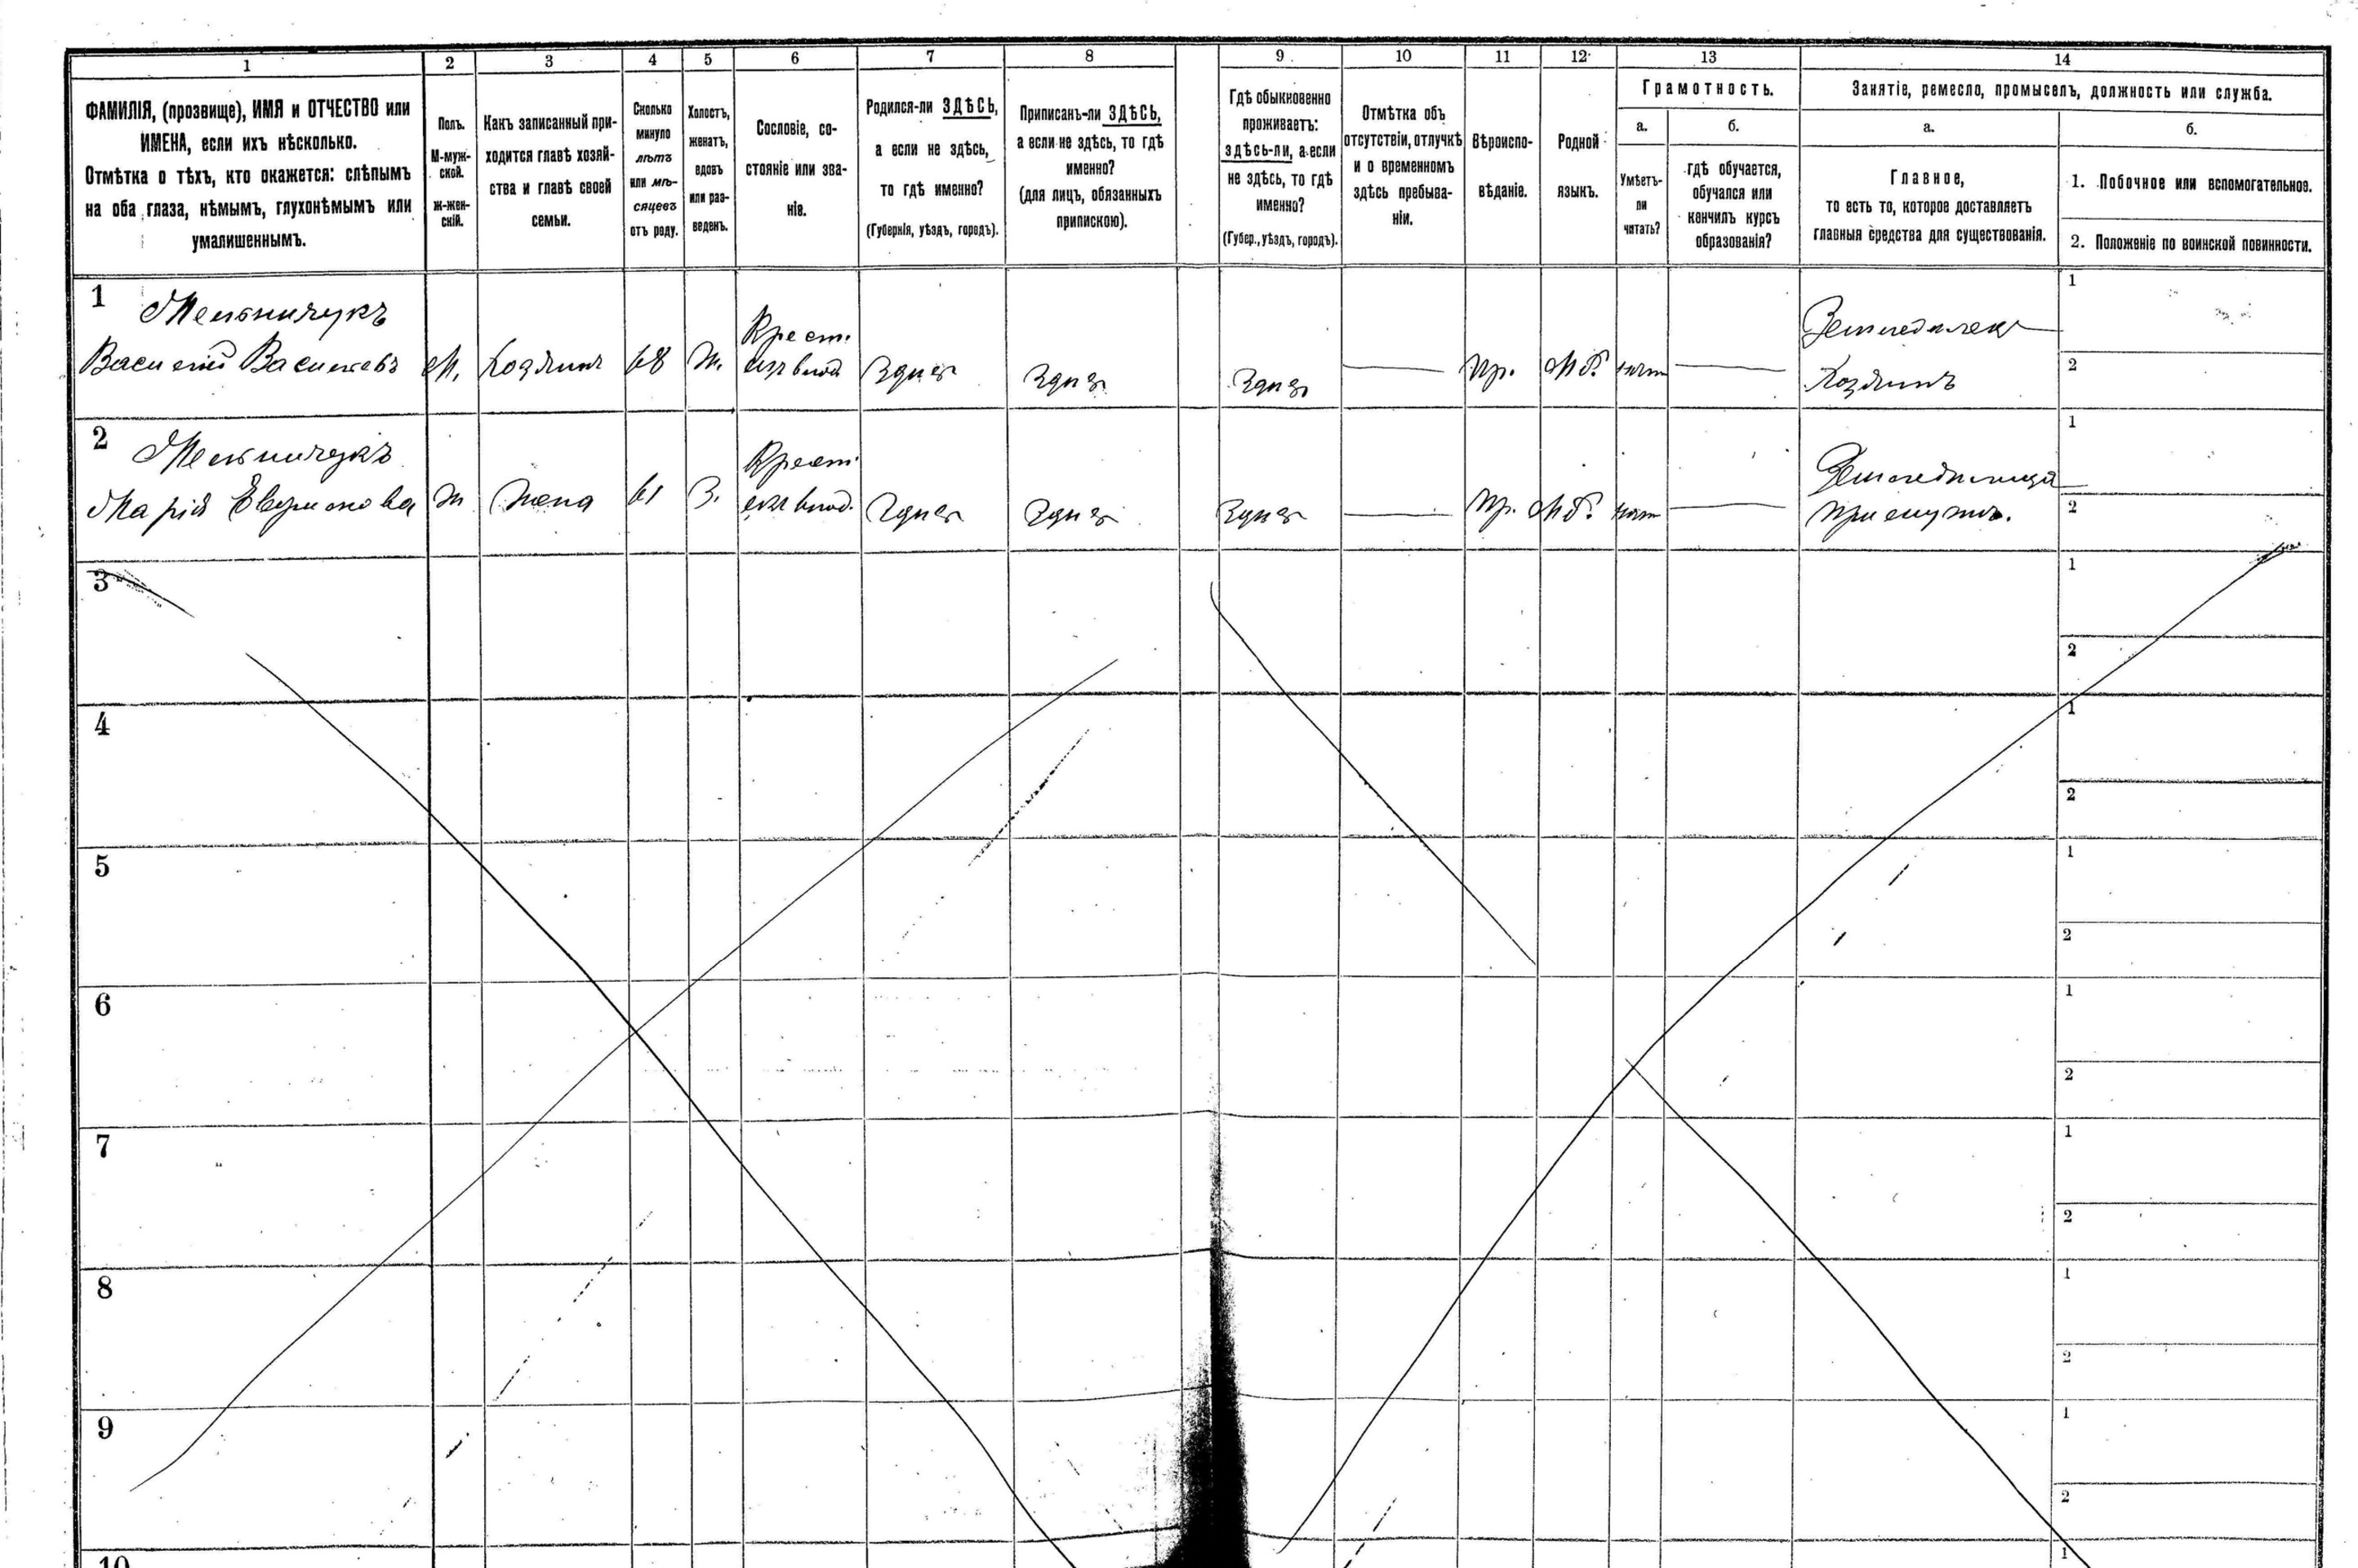 1 2 3 4 5 6 7 8 9 10 11 12 13 14
ФАМИЛІЯ, (прозвище), ИМЯ и ОТЧЕСТВО или
ИМЕНА, если ихъ нѣсколько.
Отмѣтка о тѣхъ, кто окажется: слѣпымъ
на оба глаза, нѣмымъ, глухонѣмымъ или
умалишеннымъ.
Полъ.
М-муж-
ской.
ж-жен-
скій.
Какъ записанный при-
ходится главѣ хозяй-
ства и главѣ своей
семьи.
Сколько
минуло
лѣтъ
или мѣ-
сяцевъ
отъ роду.
Холостъ,
женатъ,
вдовъ
или раз-
веденъ.
Сословіе, со-
стояніе или зва-
ніе.
Родился-ли ЗДѢСЬ,
а если не здѣсь,
то гдѣ именно?
(Губернія, уѣздъ, городъ).
Приписанъ-ли ЗДѢСЬ,
а если не здѣсь, то гдѣ
именно?
(для лицъ, обязанныхъ
припискою).
Гдѣ обыкновенно
проживаетъ:
здѣсь-ли, а если
не здѣсь, то гдѣ
именно?
(Губер., уѣздъ, городъ).
Отмѣтка объ
отсутствіи, отлучкѣ
и о временномъ
здѣсь пребыва-
ніи.
Вѣроиспо-
вѣданіе.
Родной
языкъ.
Грамотность.
а.
Умѣетъ-
ли
читать?
б.
гдѣ обучается,
обучался или
кончилъ курсъ
образованія?
Занятіе, ремесло, промыселъ, должность или служба.
а.
Главное,
то есть то, которое доставляетъ
главныя средства для существованія.
б.
1. Побочное или вспомогательное.
2. Положеніе по воинской повинности.
1
Мельничукъ
Василій Васильевъ
М.
Хозяинъ
68
Ж.
Крест.
Здѣсь
Здѣсь
Здѣсь
Пр.
нѣтъ
Земледѣлецъ
Хозяинъ
1
2
2
Мельничукъ
Марія
Ж
Жена
61
З.
Крест.
Здѣсь
Здѣсь
Здѣсь
Пр.
нѣтъ
Земледѣлица
при мужѣ.
1
2
3
1
2
4
1
2
5
1
2
6
1
2
7
1
2
8
1
2
9
1
2
10
1